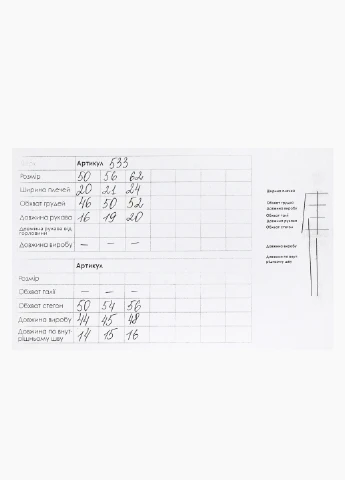 Артикул 533
Розмір 50 56 62
Ширина плечей 20 21 24
Обхват грудей 46 50 52
Довжина рукава 16 19 20
Довжина рукава від горловини
Довжина виробу – – –
Артикул
Розмір
Обхват талії – – –
Обхват стегон 50 54 56
Довжина виробу 44 45 48
Довжина по внут-
рішньому шву 14 15 16
Ширина плечей
Обхват грудей
Довжина виробу
Обхват талії
Довжина рукава
Обхват стегон
Довжина виробу
Довжина по внут-
рішньому шву